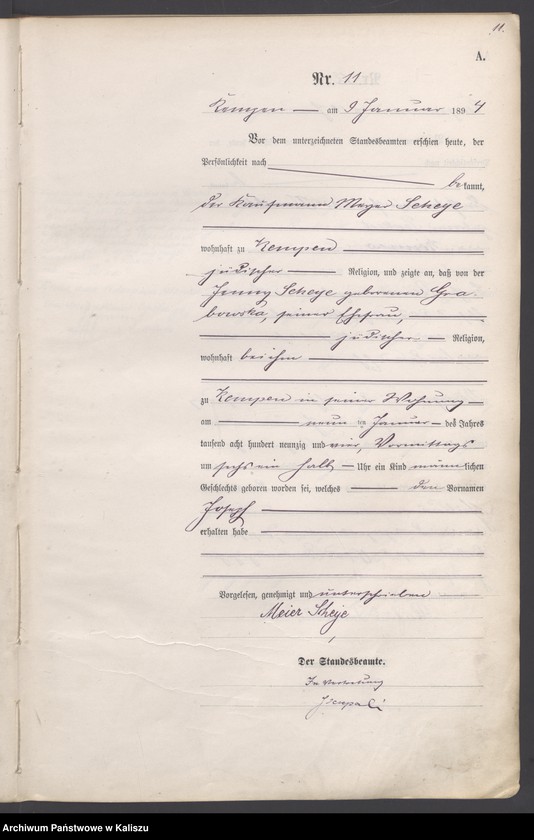 11.
A.
Nr. 11
Kempen am 9 Januar 1894
Vor dem unterzeichneten Standesbeamten erschien heute, der
Persönlichkeit nach
bekannt,
der Kaufmann Meyer Scheye
wohnhaft zu Kempen
jüdischer Religion, und zeigte an, daß von der
Jenny Scheye geborenen Gra-
bowska, seiner Ehefrau,
jüdischer Religion,
wohnhaft bei ihm
zu Kempen in seiner Wohnung
am neun ten Januar des Jahres
tausend acht hundert neunzig und vier, Vormittags
um sechs ein halb Uhr ein Kind männlichen
Geschlechts geboren worden sei, welches den Vornamen
Joseph
erhalten habe
Vorgelesen, genehmigt und unterschrieben
Meier Scheje
Der Standesbeamte.
In Vertretung
Archiwum Państwowe w Kaliszu